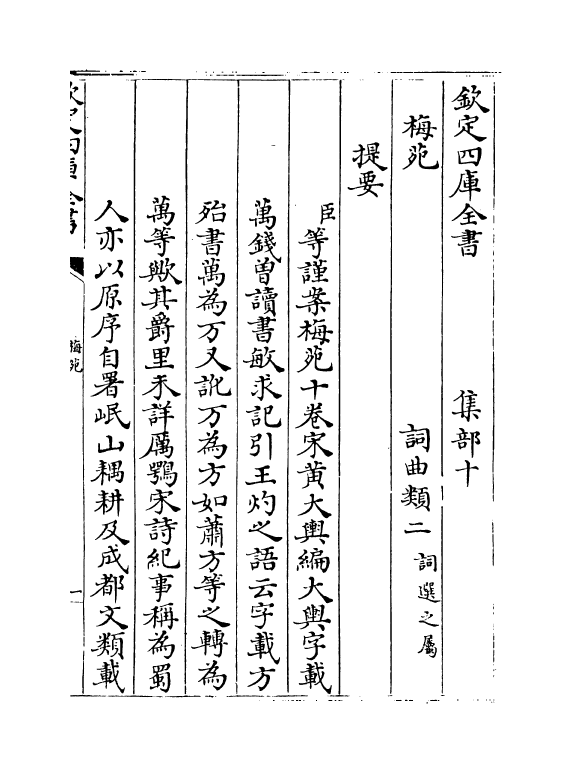 欽定四庫全書　集部十
梅苑　詞曲類二詞選之屬
提要
臣等謹案梅苑十卷宋黄大輿編大輿字載
萬錢曽讀書敏求記引王灼之語云字載方
殆書萬為万又訛万為方如蕭方等之轉為
萬等歟其爵里未詳厲鶚宋詩紀事稱為蜀
人亦以原序自署岷山耦耕及成都文類載
欽定四庫全書
梅苑
一